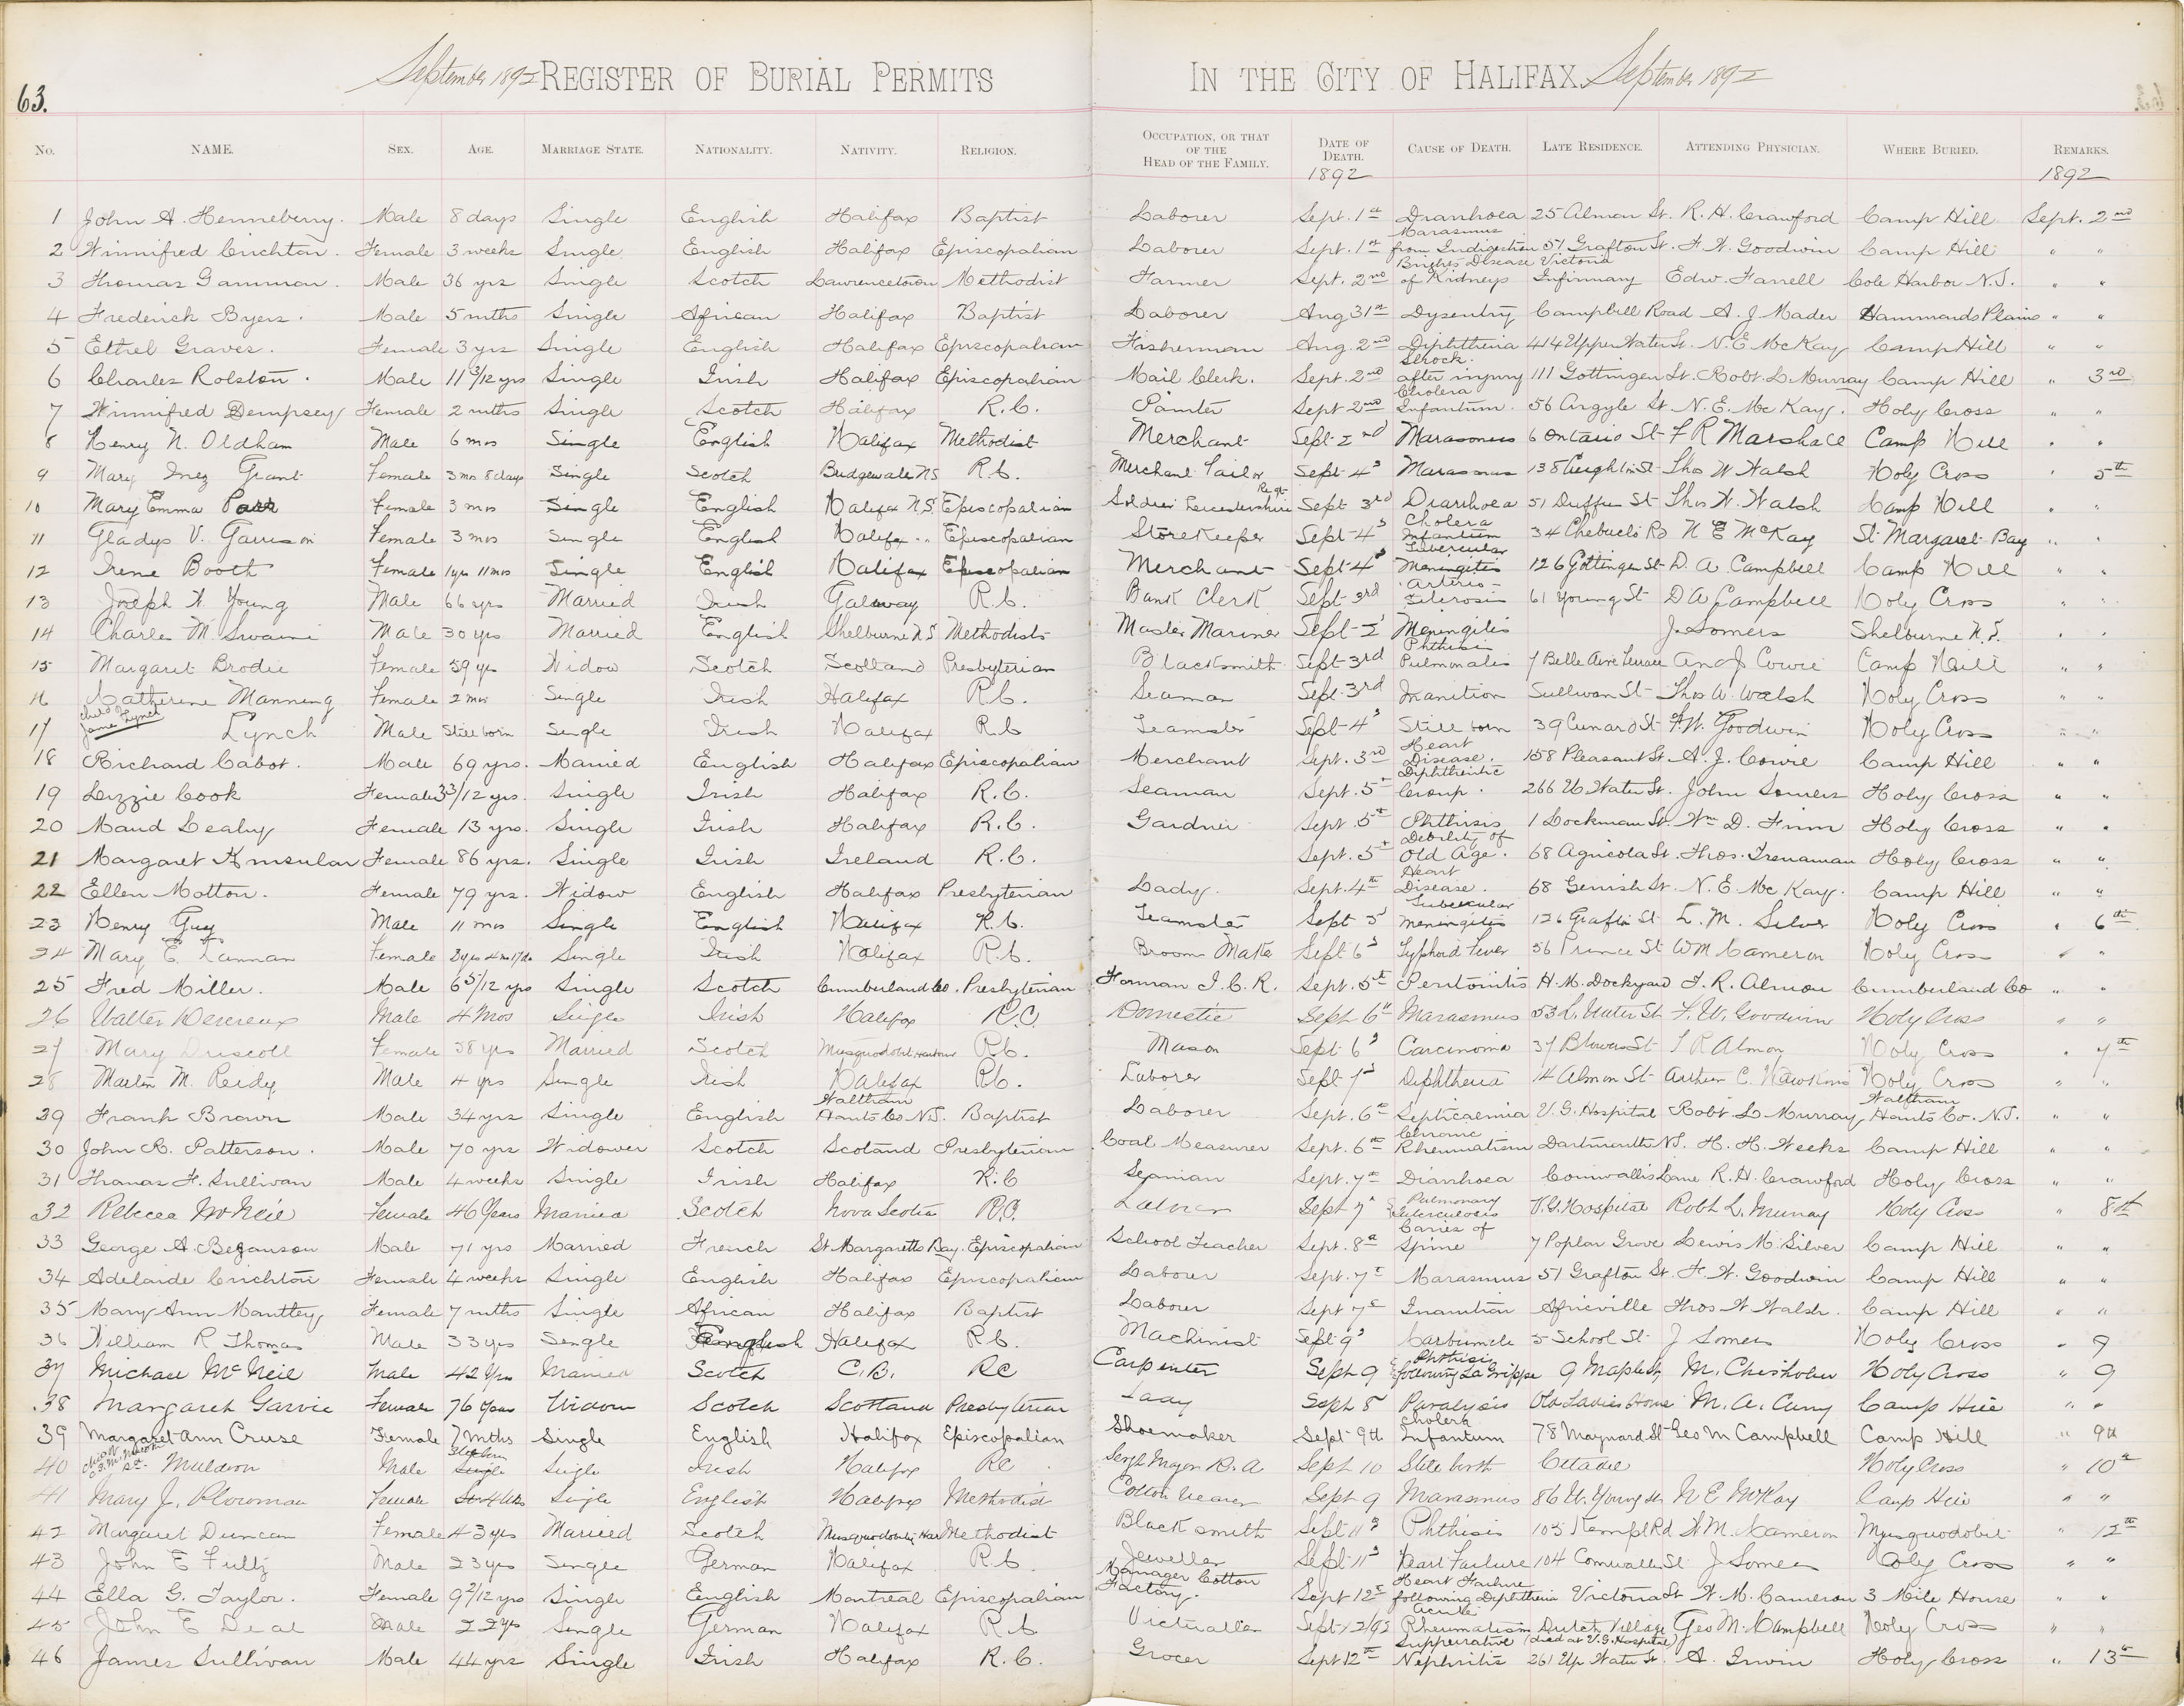 September 1892 REGISTER OF BURIAL PERMITS IN THE CITY OF HALIFAX. September 1892
63.
No. NAME. SEX. AGE. MARRIAGE STATE. NATIONALITY. NATIVITY. RELIGION. OCCUPATION, OR THAT OF THE HEAD OF THE FAMILY. DATE OF DEATH. CAUSE OF DEATH. LATE RESIDENCE. ATTENDING PHYSICIAN. WHERE BURIED. REMARKS.
1892 1892
1 John A. Henneberry. Male 8 days Single English Halifax Baptist Laborer Sept. 1st Diarrhoea 25 Almon St. R. H. Crawford Camp Hill Sept. 2nd
2 Winnifred Crichton. Female 3 weeks Single English Halifax Episcopalian Laborer Sept. 1st Marasmus from Indigestion 51 Grafton St. F. W. Goodwin Camp Hill " "
3 Thomas Gammon. Male 36 yrs Single Scotch Lawrencetown Methodist Farmer Sept. 2nd Brights Disease of Kidneys Victoria Infirmary Edw. Farrell Cole Harbor N.S. " "
4 Frederick Byers. Male 5 mths Single African Halifax Baptist Laborer Aug 31st Dysentry Campbell Road A. J. Mader Hammonds Plains " "
5 Ethel Graves. Female 3 yrs Single English Halifax Episcopalian Fisherman Aug. 2nd Diphtheria 414 Upper Water St. N. E. McKay Camp Hill " "
6 Charles Rolston. Male 11 3/12 yrs Single Irish Halifax Episcopalian Mail Clerk. Sept. 2nd Shock. after injury 111 Gottingen St. Robt. L. Murray Camp Hill " 3rd
7 Winnifred Dempsey Female 2 mths Single Scotch Halifax R.C. Painter Sept 2nd Cholera Infantum. 56 Argyle St N. E. McKay. Holy Cross " "
8 Henry N. Oldham Male 6 mos Single English Halifax Methodist Merchant Sept 2nd Marasmus 6 Ontario St F R Marshall Camp Hill " "
9 Mary Inez Grant Female 3 mos 8 days Single Scotch Bridgewater NS R.C. Merchant Tailor Sept 4 Marasmus 138 Creighton St Thos W Walsh Holy Cross " 5th
10 Mary Emma Parr Female 3 mos Single English Halifax N.S. Episcopalian Soldier Leicestershire Regt Sept 3rd Diarrhoea 51 Duffus St Thos W. Walsh Camp Hill " "
11 Gladys V. Garrison Female 3 mos Single English Halifax " " Episcopalian StoreKeeper Sept 4 Cholera Infantum 34 Chebucto Rd N E McKay St Margaret Bay " "
12 Irene Booth Female 1 yr 11 mos Single English Halifax Episcopalian Merchant Sept 4 Tubercular Meningitis 126 Gottingen St D. A. Campbell Camp Hill " "
13 Joseph W. Young Male 66 yrs Married Irish Galway R.C. Bank Clerk Sept 3rd Arterio-Sclerosis 61 Young St D A Campbell Holy Cross " "
14 Charles M. Swaine Male 30 yrs Married English Shelburne N.S. Methodists Master Mariner Sept 2 Meningitis J. Somers Shelburne N.S. " "
15 Margaret Brodie Female 59 yrs Widow Scotch Scotland Presbyterian Blacksmith Sept 3rd Phthisis Pulmonalis 7 Belle Aire Terrace And J Cowie Camp Hill " "
16 Catherine Manning Female 2 mos Single Irish Halifax R.C. Seaman Sept 3rd Inanition Sullivan St Thos W. Walsh Holy Cross " "
17 Child of James Lynch Lynch Male Still born Single Irish Halifax R.C Teamster Sept 4 Still born 39 Cunard St F. W. Goodwin Holy Cross " "
18 Richard Cabot. Male 69 yrs. Married English Halifax Episcopalian Merchant Sept. 3rd Heart Disease. 158 Pleasant St. A. J. Cowie Camp Hill " "
19 Lizzie Cook Female 3 3/12 yrs. Single Irish Halifax R.C. Seaman Sept. 5th Diphtheritic Croup. 266 U Water St. John Somers Holy Cross " "
20 Maud Leahy Female 13 yrs. Single Irish Halifax R.C. Gardner Sept. 5th Phthisis 1 Lockman St. Wm D. Finn Holy Cross " "
21 Margaret Kinsular Female 86 yrs. Single Irish Ireland R.C. Sept. 5th Debility of Old Age. 68 Agricola St. Thos. Trenaman Holy Cross " "
22 Ellen Motton. Female 79 yrs. Widow English Halifax Presbyterian Lady. Sept. 4th Heart Disease. 68 Gerrish St. N. E. McKay. Camp Hill " "
23 Henry Guy Male 11 mos Single English Halifax R.C. Teamster Sept 5 Tubercular Meningitis 126 Grafton St L. M. Silver Holy Cross " 6th
24 Mary E. Lannan Female 3 yrs 4 m 17 ds Single Irish Halifax R.C. Broom Maker Sept 6 Typhoid Fever 56 Prince St W M Cameron Holy Cross " "
25 Fred Miller. Male 6 5/12 yrs Single Scotch Cumberland Co. Presbyterian Forman I.C.R. Sept. 5th Peritonitis H.M. Dockyard T. R. Almon Cumberland Co " "
26 Walter Devereux Male 4 Mos Single Irish Halifax R.C. Domestic Sept 6th Marasmus 53 L. Water St F. W. Goodwin Holy Cross " "
27 Mary Driscoll Female 58 yrs Married Scotch Musquodobit Harbour R.C. Mason Sept 6 Carcinoma 37 Blowers St T R Almon Holy Cross " 7th
28 Martin M. Reidy Male 4 yrs Single Irish Halifax R.C. Laborer Sept 7 Diphtheria 14 Almon St Arthur C. Hawkins Holy Cross " "
29 Frank Brown Male 34 yrs Single English Waltham Hants Co N.S. Baptist Laborer Sept. 6th Septicaemia V. G. Hospital Robt. L. Murray Waltham Hants Co. N.S. " "
30 John R. Patterson. Male 70 yrs Widower Scotch Scotand Presbyterian Coal Measurer Sept. 6th Chronic Rheumatism Dartmouth N.S. H. H. Weeks Camp Hill " "
31 Thomas F. Sullivan Male 4 weeks Single Irish Halifax R.C Seaman Sept. 7th Diarrhoea Cornwallis Lane R. H. Crawford Holy Cross " "
32 Rebecca McNeil Female 46 Years Married Scotch Nova Scotia R.C. Laborer Sept 7 Pulmonary Tuberculosis V. G. Hospital Robt L. Murray Holy Cross " 8th
33 George A. Beganson Male 71 yrs Married French St Margaretts Bay. Episcopalian School Teacher Sept. 8th Caries of Spine 7 Poplar Grove Lewis M. Silver Camp Hill " "
34 Adelaide Crichton Female 4 weeks Single English Halifax Episcopalian Laborer Sept. 7th Marasmus 51 Grafton St. F. W. Goodwin Camp Hill " "
35 Mary Ann Manttey Female 7 mths Single African Halifax Baptist Laborer Sept 7th Inanition Africville Thos W Walsh. Camp Hill " "
36 William R Thomas Male 33 yrs Single English Halifax R.C. Machinist Sept 9 Carbuncle 5 School St J Somers Holy Cross " 9
37 Michael McNeil Male 42 Yrs Married Scotch C.B. RC Carpenter Sept 9 Phthisis following La Grippe 9 Maple St, M. Chisholm Holy Cross " 9
38 Margaret Garvie Female 76 Years Widow Scotch Scotland Presbyterian Lady Sept 8 Paralysis Old Ladies Home M. A. Curry Camp Hill " "
39 Margaret Ann Cruse Female 7 Mths Single English Halifax Episcopalian Shoemaker Sept 9th Cholera Infantum 78 Maynard St Geo M Campbell Camp Hill " 9th
40 Child of Muldoon Male Still born Single Single Irish Halifax RC Sergt Major R.A Sept 10 Still birth Citadel Holy Cross " 10th
41 Mary J. Plowman Female Single English Halifax Methodist Cotton Weaver Sept 9 Marasmus 86 U. Young St N E McKay Camp Hill " "
42 Margaret Duncan Female 43 yrs Married Scotch Musquodobit Har Methodist Black smith Sept 11 Phthisis 105 Kempt Rd W M. Cameron Musquodobit " 12th
43 John E Fultz Male 23 yrs Single German Halifax R.C Jeweller Sept 11 Heart Failure 104 Cornwallis St J Somers Holy Cross " "
44 Ella G. Taylor. Female 9 2/12 yrs Single English Montreal Episcopalian Manager Cotton Factory. Sept 12th Heart Failure following Diphtheria Victoria St W. M. Cameron 3 Mile House " "
45 John E Deal Male 22 yrs Single German Halifax R.C Victualler Sept 12/92 Acute Rheumatism Dutch Village (died at V. G. Hospital) Geo M. Campbell Holy Cross " "
46 James Sullivan Male 44 yrs Single Irish Halifax R.C. Grocer Sept 12th Suppurative Nephritis 261 Up Water St. A. Irwin Holy Cross " 13th